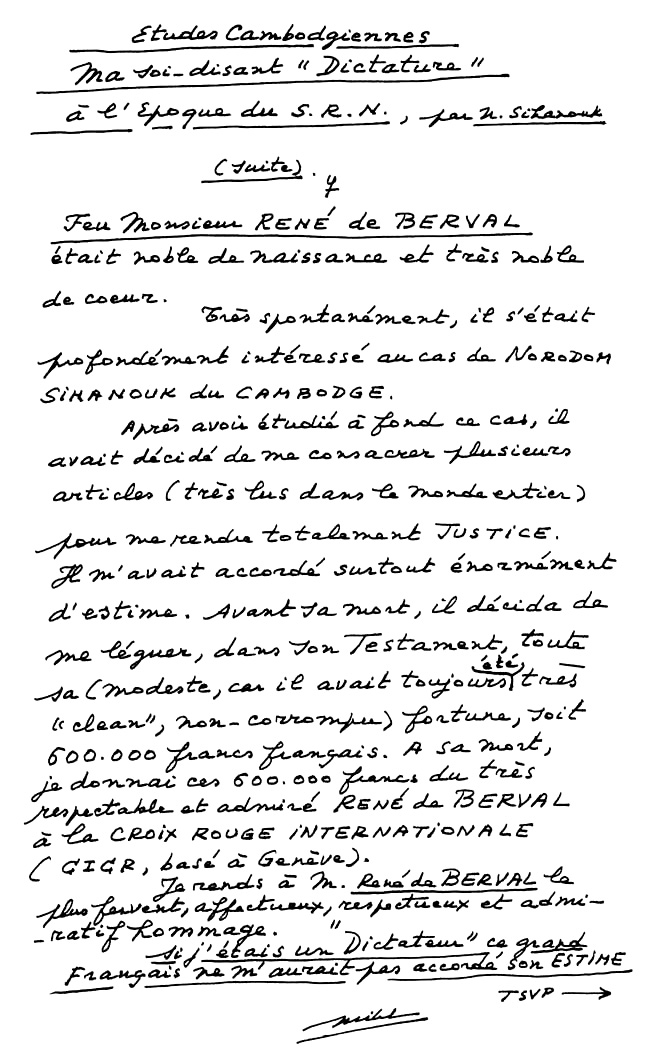 Etudes Cambodgiennes
Ma soi-disant "Dictature"
à l'Epoque du S.R.N., par N. Sihanouk
(suite).
Feu Monsieur RENÉ de BERVAL
était noble de naissance et très noble
de coeur.
Très spontanément, il s'était
profondément intéressé au cas de NORODOM
SIHANOUK du CAMBODGE.
Après avoir étudié à fond ce cas, il
avait décidé de me consacrer plusieurs
articles (très lus dans le monde entier)
pour me rendre totalement JUSTICE.
Il m'avait accordé surtout énormément
d'estime. Avant sa mort, il décida de
me léguer, dans son Testament, toute
sa (modeste, car il avait toujours été très
"clean", non-corrompu) fortune, soit
600.000 francs français. A sa mort,
je donnai ces 600.000 francs du très
respectable et admiré RENÉ de BERVAL
à la CROIX ROUGE INTERNATIONALE
(CICR, basé à Genève).
Je rends à M. René de BERVAL le
plus fervent, affectueux, respectueux et admi-
-ratif hommage.
Si j'étais un "Dictateur" ce grand
Français ne m'aurait pas accordé son ESTIME
TSVP →